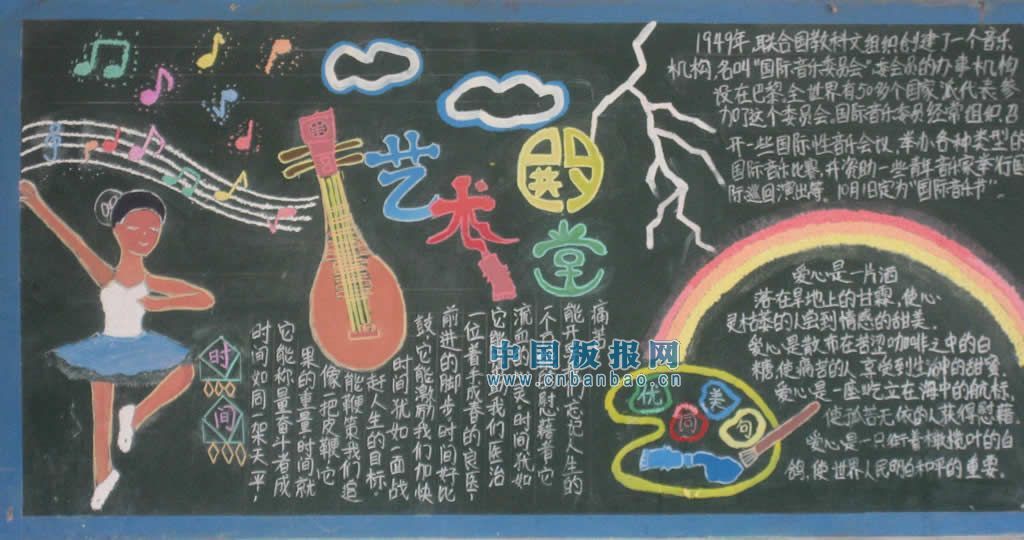 艺术殿堂
1949年,联合国教科文组织创建了一个音乐
机构,名叫"国际音乐委员会"委会员的办事机构
设在巴黎,全世界有50多个国家派代表参
加了这个委员会,国际音乐委员经常组织召
开一些国际性音乐会议,举办各种类型的
国际音乐比赛,并资助一些青年音乐家举行国
际巡回演出等, 10月1日定为"国际音乐节".
时间
时间如同一架天平,
它能称量奋斗者成
果的重量时间就
像一把皮鞭,它
能鞭策我们追
赶人生的目标.
时间犹如一面战
鼓,它能激励我们加快
前进的脚步.时间好比
一位着手成春的良医
它帮助我们医治
流血的心灵.时间犹如
慰藉有它
能开我们忘记人生的
痛苦
优美句
爱心是一片洒
落在旱地上的甘霖,使心
灵枯萎的人尝到情感的甜美.
爱心是散布在苦涩咖啡之中的白
糖,使痛苦的人享受到生活中的甜蜜.
爱心是一座屹立在海中的航标,
使孤苦无依的人获得慰藉.
爱心是一只衔着橄榄叶的白
鸽,使世界人民明白和平的重要.
中国板报网
www.cnbanbao.cn